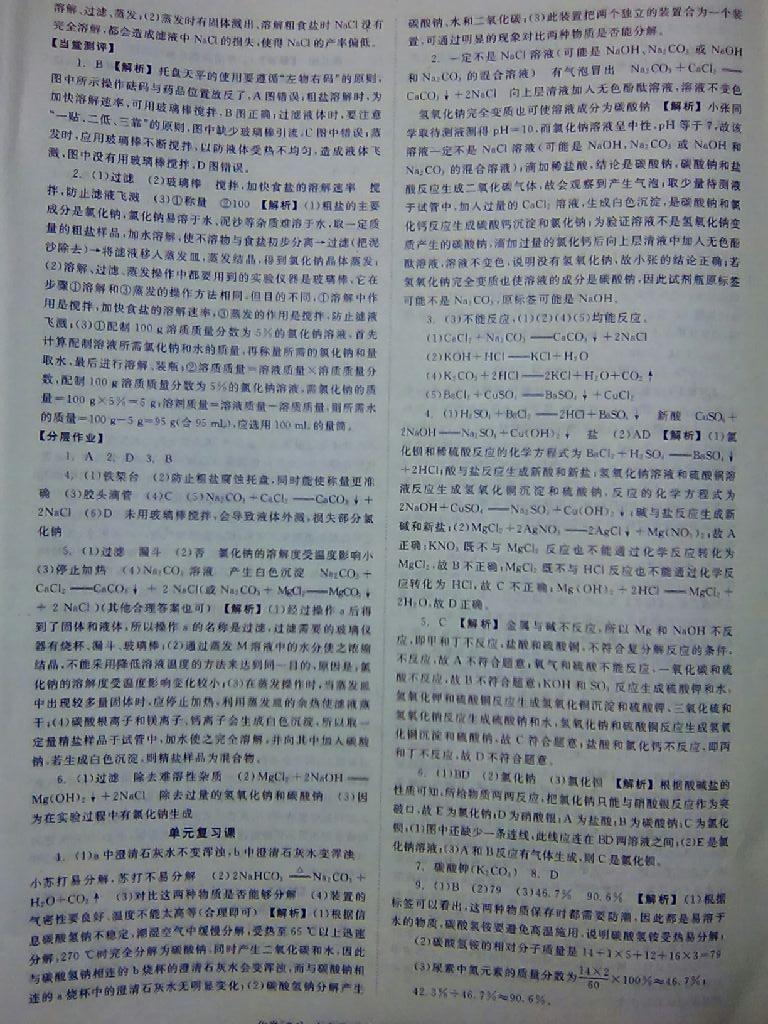 溶解、过滤、蒸发;(2)蒸发时有固体溅出、溶解粗食盐时 NaCl 没有
完全溶解,都会造成滤液中 NaCl 的损失,使得 NaCl 的产率偏低。
【当堂测评】
1. B 【解析】托盘天平的使用要遵循“左物右码”的原则,
图中所示操作砝码与药品位置放反了,A图错误;粗盐溶解时,为
加快溶解速率,可用玻璃棒搅拌,B图正确;过滤液体时,要注意
“一贴、二低、三靠”的原则,图中缺少玻璃棒引流,C图中错误;蒸
发时,应用玻璃棒不断搅拌,以防液体受热不均匀,造成液体飞
溅,图中没有用玻璃棒搅拌,D图错误。
2. (1)过滤 (2)玻璃棒 搅拌,加快食盐的溶解速率 搅
拌,防止滤液飞溅 (3)①称量 ②100 【解析】(1)粗盐的主要
成分是氯化钠,氯化钠易溶于水,泥沙等杂质难溶于水,取一定质
量的粗盐样品,加水溶解,使不溶物与食盐初步分离→过滤(把泥
沙除去)→将滤液移入蒸发皿,蒸发结晶,得到氯化钠晶体蒸发;
(2)溶解、过滤、蒸发操作中都要用到的实验仪器是玻璃棒,它在
步骤①溶解和③蒸发的操作方法相同,但目的不同:①溶解中作
用是搅拌,加快食盐的溶解速率;③蒸发的作用是搅拌,防止滤液
飞溅;(3)①配制 100 g 溶质质量分数为 5%的氯化钠溶液,首先
计算配制溶液所需氯化钠和水的质量,再称量所需的氯化钠和量
取水,最后进行溶解、装瓶;②溶质质量=溶液质量×溶质质量分
数,配制 100 g 溶质质量分数为 5%的氯化钠溶液,需氯化钠的质
量=100 g×5%=5 g;溶剂质量=溶液质量-溶质质量,则所需水
的质量=100 g-5 g=95 g(合 95 mL),应选用 100 mL 的量筒。
【分层作业】
1. A 2. D 3. B
4. (1)铁架台 (2)防止粗盐腐蚀托盘,同时能使称量更准
确 (3)胶头滴管 (4)C (5)Na₂CO₃+CaCl₂══CaCO₃↓+
2NaCl (6)D 未用玻璃棒搅拌,会导致液体外溅,损失部分氯
化钠
5. (1)过滤 漏斗 (2)否 氯化钠的溶解度受温度影响小
(3)停止加热 (4)Na₂CO₃ 溶液 产生白色沉淀 Na₂CO₃+
CaCl₂══CaCO₃↓+2 NaCl(或 Na₂CO₃+MgCl₂══MgCO₃↓
+2 NaCl)(其他合理答案也可) 【解析】(1)经过操作 a 后得
到了固体和液体,所以操作 a 的名称是过滤,过滤需要的玻璃仪
器有烧杯、漏斗、玻璃棒;(2)通过蒸发 M 溶液中的水分使之浓缩
结晶,不能采用降低溶液温度的方法来达到同一目的,原因是:氯
化钠的溶解度受温度影响变化较小;(3)在蒸发操作时,当蒸发皿
中出现较多量固体时,应停止加热,利用蒸发皿的余热使滤液蒸
干;(4)碳酸根离子和镁离子、钙离子会生成白色沉淀,所以取一
定量精盐样品于试管中,加水使之完全溶解,并向其中加入碳酸
钠,若生成白色沉淀,则精盐样品为混合物。
6. (1)过滤 除去难溶性杂质 (2)MgCl₂+2NaOH══
Mg(OH)₂↓+2NaCl 除去过量的氢氧化钠和碳酸钠 (3)因
为在实验过程中有氯化钠生成
单元复习课
1. (1)a 中澄清石灰水不变浑浊,b 中澄清石灰水变浑浊
小苏打易分解,苏打不易分解 (2)2NaHCO₃ ══△ Na₂CO₃+
H₂O+CO₂↑ (3)对比这两种物质是否能够分解 (4)装置的
气密性要良好、温度不能太高等(合理即可) 【解析】(1)根据信
息碳酸氢钠不稳定,潮湿空气中缓慢分解,受热至 65℃以上迅速
分解,270℃时完全分解为碳酸钠,同时产生二氧化碳和水,因此
与碳酸氢钠相连的 b 烧杯的澄清石灰水会变浑浊,而与碳酸钠相
连的 a 烧杯中的澄清石灰水无明显变化;(2)碳酸氢钠分解产生
碳酸钠、水和二氧化碳;(3)此装置把两个独立的装置合为一个装
置,可通过明显的现象对比两种物质是否能分解。
2. 一定不是 NaCl 溶液(可能是 NaOH、Na₂CO₃ 或 NaOH
和 Na₂CO₃ 的混合溶液) 有气泡冒出 Na₂CO₃+CaCl₂══
CaCO₃↓+2NaCl 向上层清液加入无色酚酞溶液,溶液不变色
氢氧化钠完全变质也可使溶液成分为碳酸钠 【解析】小张同
学取待测液测得 pH=10,而氯化钠溶液呈中性,pH 等于 7,故该
溶液一定不是 NaCl 溶液(可能是 NaOH、Na₂CO₃ 或 NaOH 和
Na₂CO₃ 的混合溶液);滴加稀盐酸,结论是碳酸钠,碳酸钠和盐
酸反应生成二氧化碳气体,故会观察到产生气泡;取少量待测液
于试管中,加入过量的 CaCl₂ 溶液,生成白色沉淀,是碳酸钠和氯
化钙反应生成碳酸钙沉淀和氯化钠;为验证溶液不是氢氧化钠变
质产生的碳酸钠,滴加过量的氯化钙后向上层清液中加入无色酚
酞溶液,溶液不变色,说明没有氢氧化钠,故小张的结论正确;若
氢氧化钠完全变质也使溶液的成分是碳酸钠,因此试剂瓶原标签
可能不是 Na₂CO₃,原标签可能是 NaOH。
3. (3)不能反应,(1)(2)(4)(5)均能反应。
(1)CaCl₂+Na₂CO₃══CaCO₃↓+2NaCl
(2)KOH+HCl══KCl+H₂O
(4)K₂CO₃+2HCl══2KCl+H₂O+CO₂↑
(5)BaCl₂+CuSO₄══BaSO₄↓+CuCl₂
4. (1)H₂SO₄+BaCl₂══2HCl+BaSO₄↓ 新酸 CuSO₄+
2NaOH══Na₂SO₄+Cu(OH)₂↓ 盐 (2)AD 【解析】(1)氯
化钡和稀硫酸反应的化学方程式为 BaCl₂+H₂SO₄══BaSO₄↓
+2HCl;酸与盐反应生成新酸和新盐;氢氧化钠溶液和硫酸铜溶
液反应生成氢氧化铜沉淀和硫酸钠,反应的化学方程式为
2NaOH+CuSO₄══Na₂SO₄+Cu(OH)₂↓;碱与盐反应生成新
碱和新盐;(2)MgCl₂+2AgNO₃══2AgCl↓+Mg(NO₃)₂,故 A
正确;KNO₃ 既不与 MgCl₂ 反应也不能通过化学反应转化为
MgCl₂,故 B 不正确;MgCl₂ 既不与 HCl 反应也不能通过化学反
应转化为 HCl,故 C 不正确;Mg(OH)₂+2HCl══MgCl₂+
2H₂O,故 D 正确。
5. C 【解析】金属与碱不反应,所以 Mg 和 NaOH 不反
应,即甲和丁不反应,盐酸和硫酸铜,不符合复分解反应的条件,
不反应,故 A 不符合题意;氧气和硫酸不能反应,一氧化碳和硫
酸不反应,故 B 不符合题意;KOH 和 SO₃ 反应生成硫酸钾和水,
氢氧化钾和硫酸铜反应生成氢氧化铜沉淀和硫酸钾,三氧化硫和
氢氧化钠反应生成硫酸钠和水,氢氧化钠和硫酸铜反应生成氢氧
化铜沉淀和硫酸钠,故 C 符合题意;盐酸和氯化钙不反应,即丙
和丁不反应,故 D 不符合题意。
6. (1)BD (2)氯化钠 (3)氯化钡 【解析】根据酸碱盐的
性质可知,所给物质两两反应,把氯化钠只能与硝酸银反应作为突
破口,故 E 为氯化钠;D 为硝酸银;A 为盐酸;B 为碳酸钠;C 为氯化
钡;(1)图中还缺少一条连线,此线应连在 BD 两溶液之间;(2)E 是氯
化钠溶液;(3)A 和 B 反应有气体生成,则 C 是氯化钡。
7. 碳酸钾(K₂CO₃) 8. D
9. (1)B (2)79 (3)46.7% 90.6% 【解析】(1)根据
标签可以看出,这两种物质保存时都需要防潮,因此都是易溶于
水的物质,碳酸氢铵要避免高温施用,说明碳酸氢铵受热易分解;
(2)碳酸氢铵的相对分子质量是 14+1×5+12+16×3=79
(3)尿素中氮元素的质量分数为 14×2/60 ×100%≈46.7%;
42.3%÷46.7%≈90.6%。